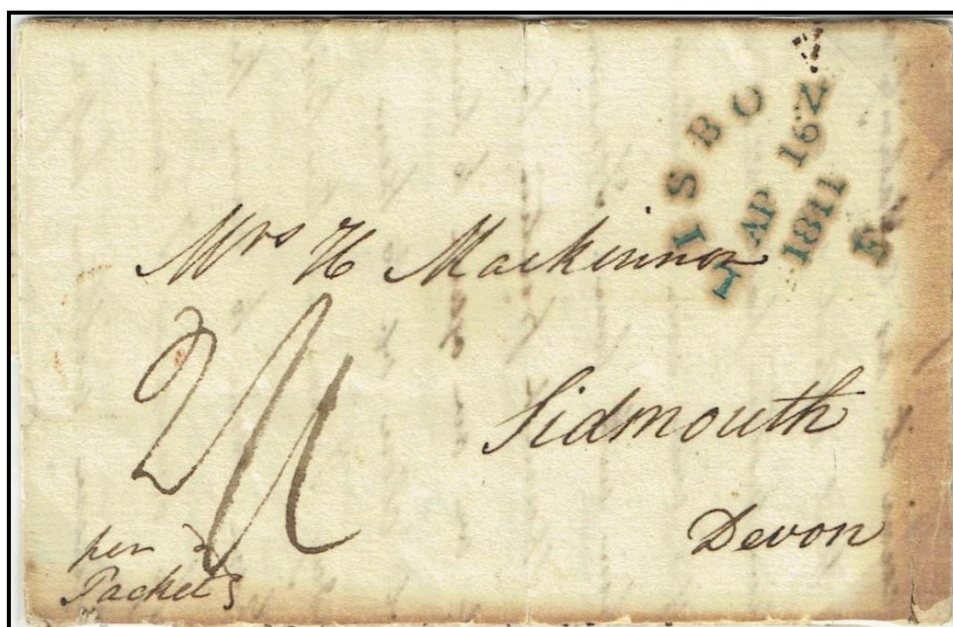 LISBO
AP 16
1811
F
Mrs H Mackinnon
Sidmouth
Devon
per
Packet